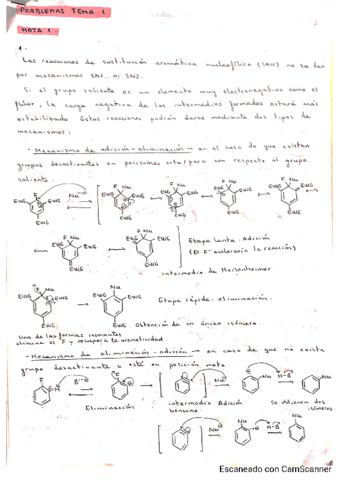 PROBLEMAS TEMA 1
HOJA 1.
1.
Las reacciones de sustitución aromática nucleofílica (SAN) no se dan
por mecanismos SN1 ni SN2.
Si el grupo saliente es un elemento muy electronegativo como el
flúor, la carga negativa de los intermedios formados estará más
estabilizada. Estas reacciones podrán darse mediante dos tipos de
mecanismos:
- Mecanismo de adición-eliminación → en el caso de que existan
grupos desactivantes en posiciones orto/para con respecto al grupo
saliente.
F Nu F Nu F Nu F Nu
EWG EWG Nu EWG EWG EWG EWG EWG EWG EWG EWG
EWG EWG EWG EWG EWG
F Nu F Nu
EWG EWG EWG EWG
EWG EWG
Etapa lenta: Adición
(El F acelerará la reacción)
intermedio de Meisenheimer.
F Nu Nu
EWG EWG EWG EWG
EWG EWG
Etapa rápida: eliminación.
obtención de un único isómero.
Una de las formas resonantes
elimina el F y recupera la aromaticidad
- Mecanismo de eliminación-adición → en caso de que no exista
grupo desactivante o esté en posición meta
F H B F Nu Nu H-B Nu
Eliminación
intermedio
bencino
Adición
se obtienen dos
isómeros
Nu H-B Nu
Escaneado con CamScanner